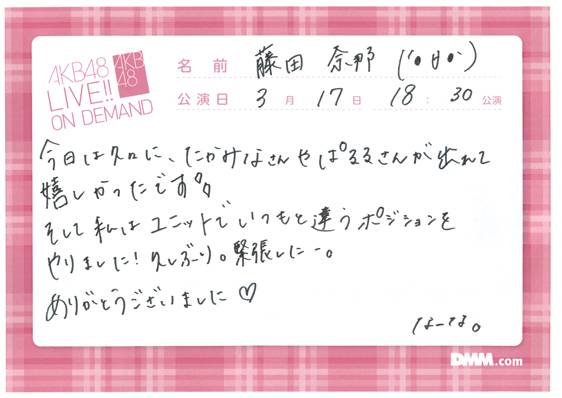 AKB48
LIVE!!
ON DEMAND
AKB
48
名前 藤田 奈那 ('• 日 •`)
公演日 3月17日 18:30公演
今日は久々に、たかみなさんやぱるるさんが出れて
嬉しかったです。
そして私はユニットでいつもと違うポジションを
やりました!久しぶり。緊張したー。
ありがとうございました♡
なーな。
DMM.com